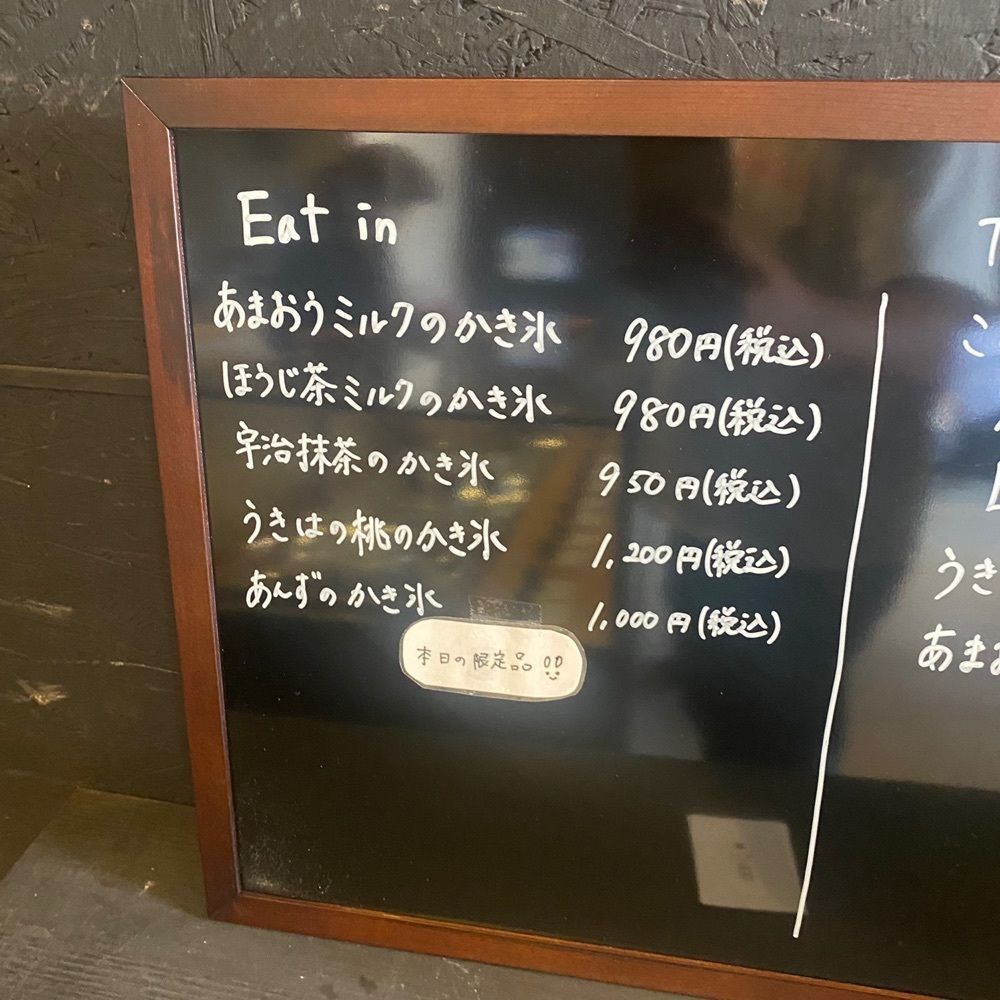 Eat in
あまおうミルクのかき氷 980円(税込)
ほうじ茶ミルクのかき氷 980円(税込)
宇治抹茶のかき氷 950円(税込)
うきはの桃のかき氷 1,200円(税込)
あんずのかき氷 1,000円(税込)
本日の限定品!!
うき
あま